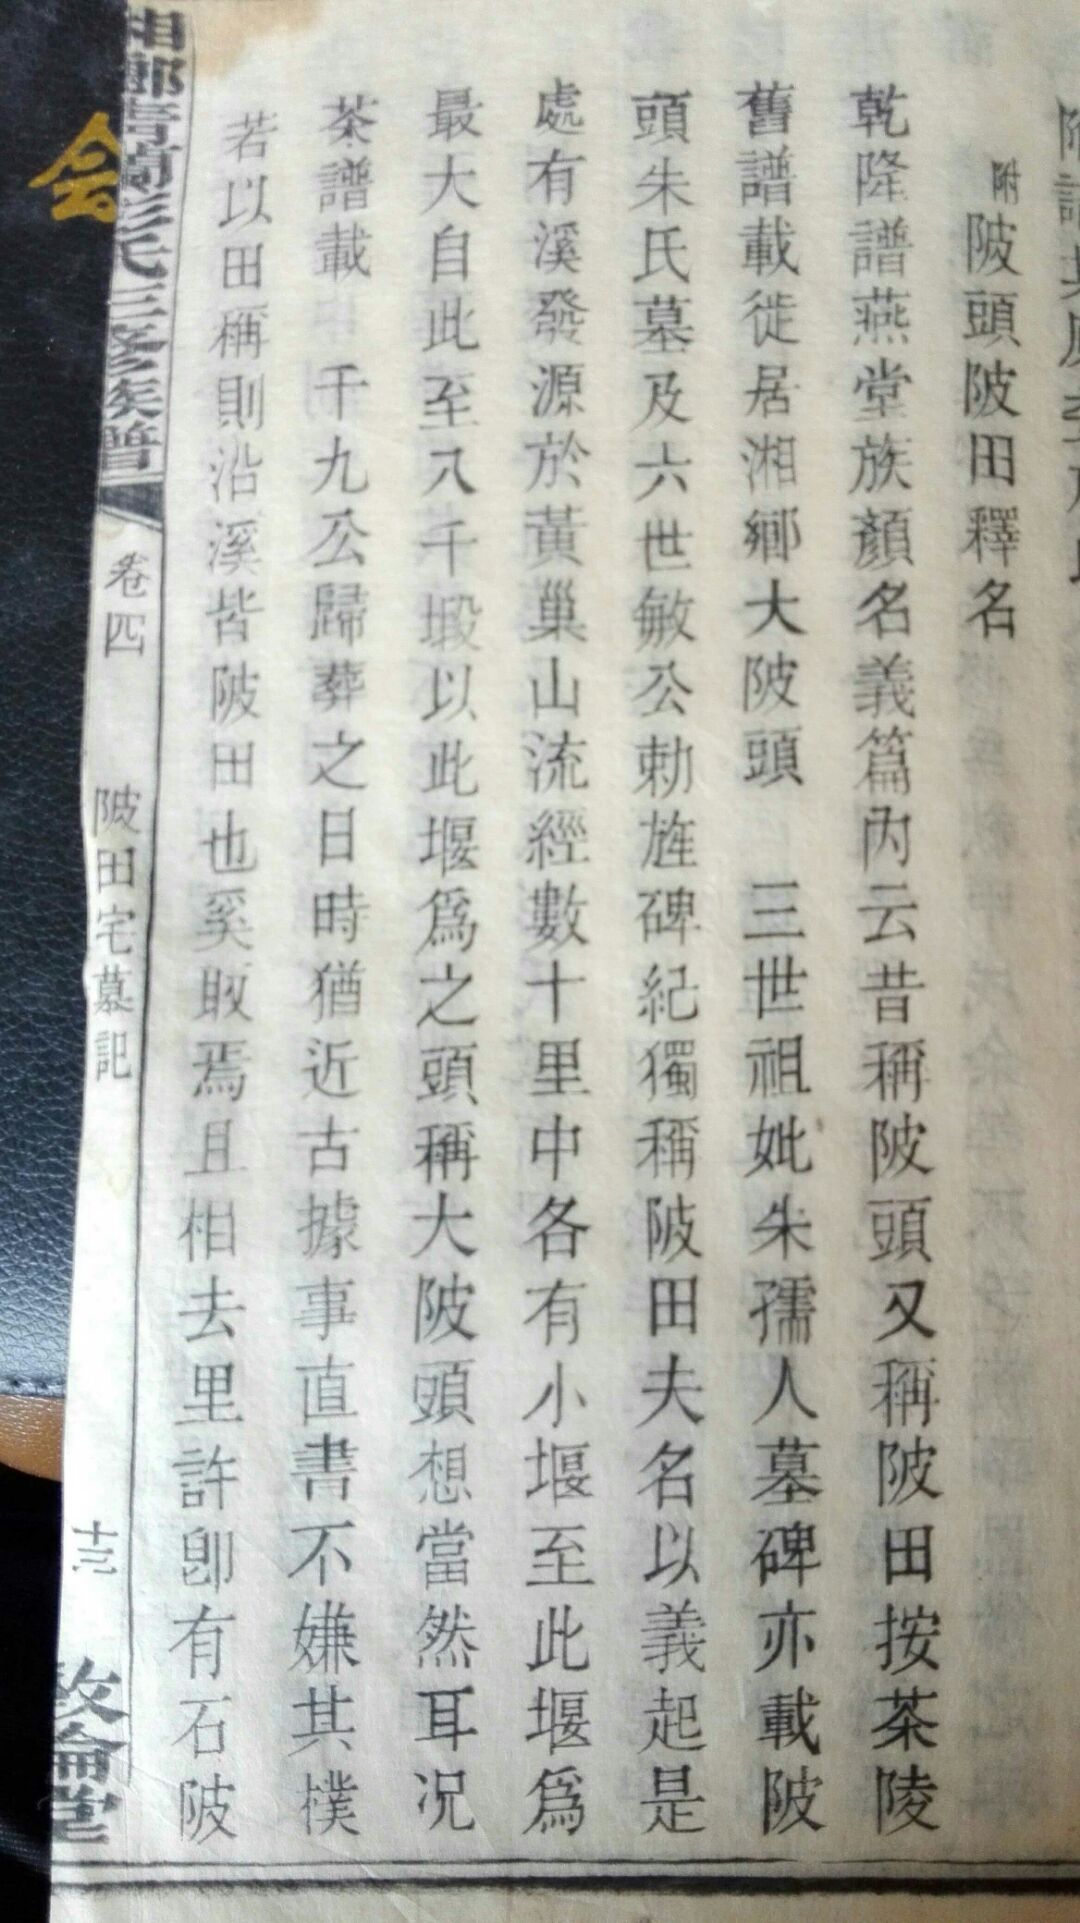 附陂頭陂田釋名
乾隆譜燕堂族顏名義篇內云昔稱陂頭又稱陂田按茶陵
舊譜載徙居湘鄉大陂頭 三世祖妣朱孺人墓碑亦載陂
頭朱氏墓及六世敏公勅旌碑紀獨稱陂田夫名以義起是
處有溪發源於黃巢山流經數十里中各有小堰至此堰爲
最大自此至八千塅以此堰爲之頭稱大陂頭想當然耳况
茶譜載 千九公歸葬之日時猶近古據事直書不嫌其樸
若以田稱則沿溪皆陂田也奚取焉且相去里許卽有石陂
湘鄉青蘭彭氏三修族譜
卷四
陂田宅墓記
十三
敦倫堂
会